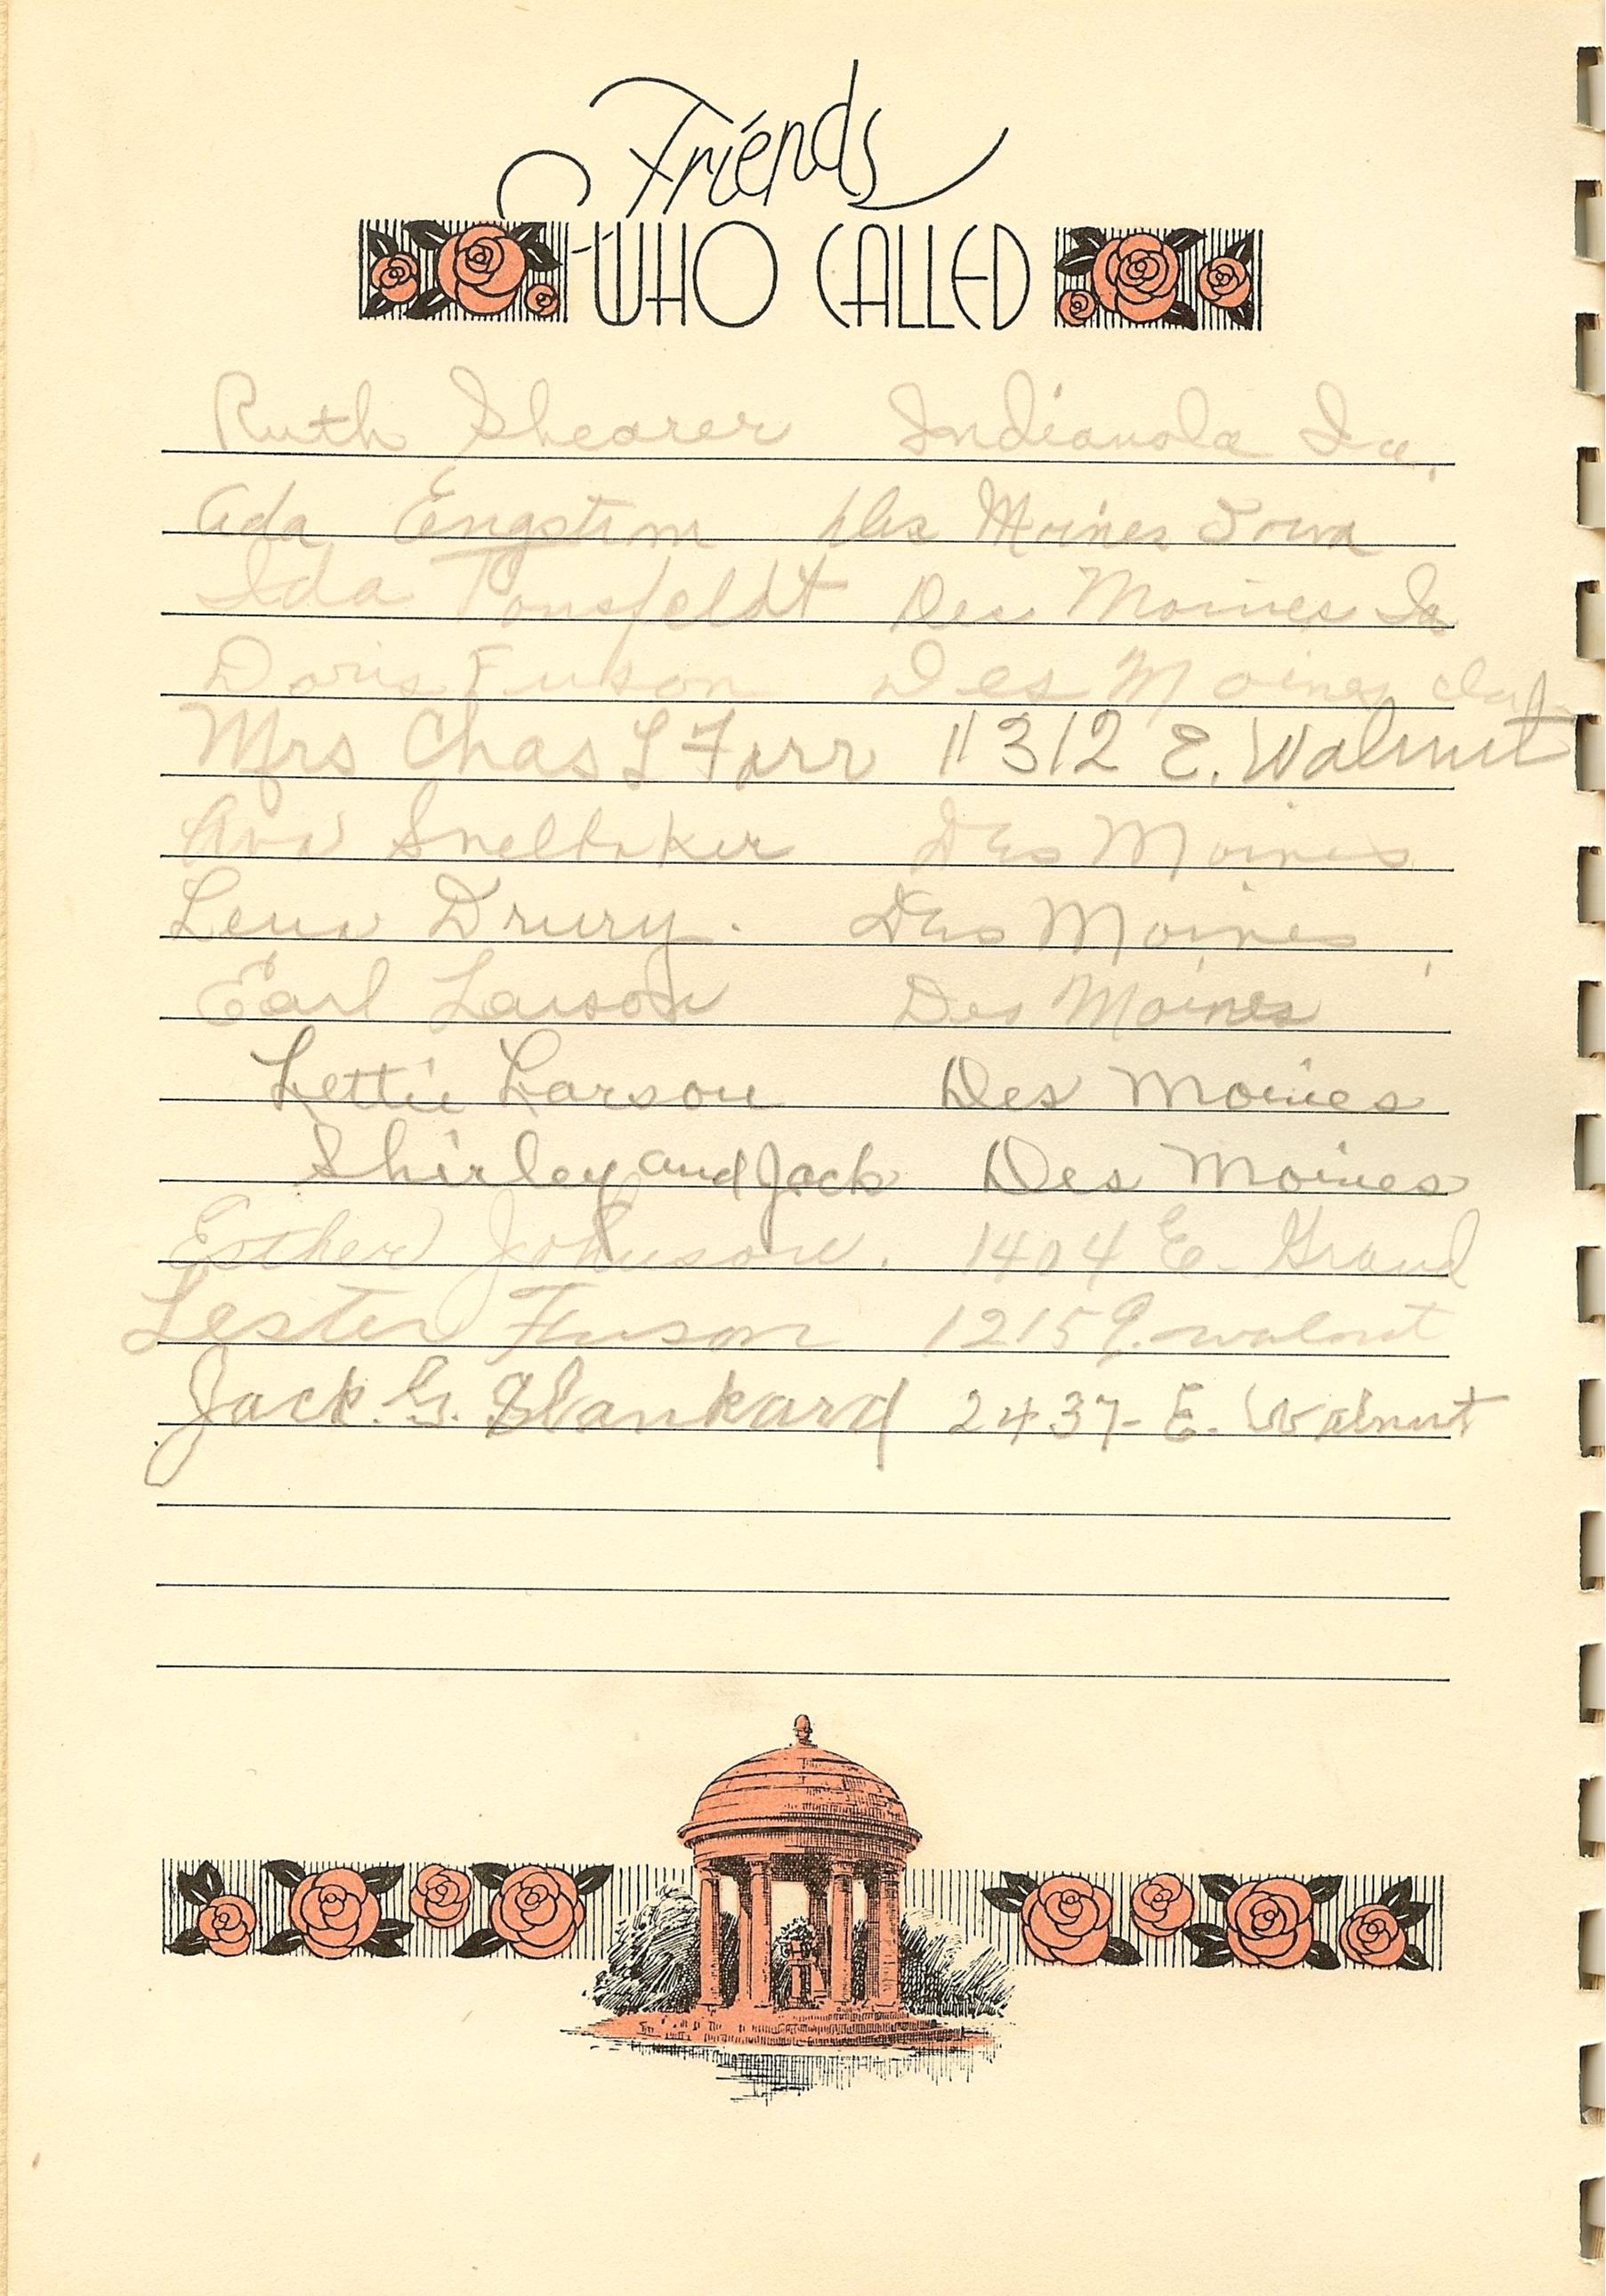 Friends
WHO CALLED
Ruth Shearer Indianola Ia.
Ada Engstrom Des Moines Iowa
Ida Tonsfeldt Des Moines Ia
Doris Fuson Des Moines
Mrs Chas L Farr 1312 E. Walnut
Ava Snelbaker Des Moines
Lena Drury. Des Moines
Earl Larson Des Moines
Lettie Larson Des Moines
Shirley and Jack Des Moines
Esther Johnson. 1404 E. Grand
Lester Fuson 1215 E. walnut
Jack. G. Blankard 2437- E. Walnut